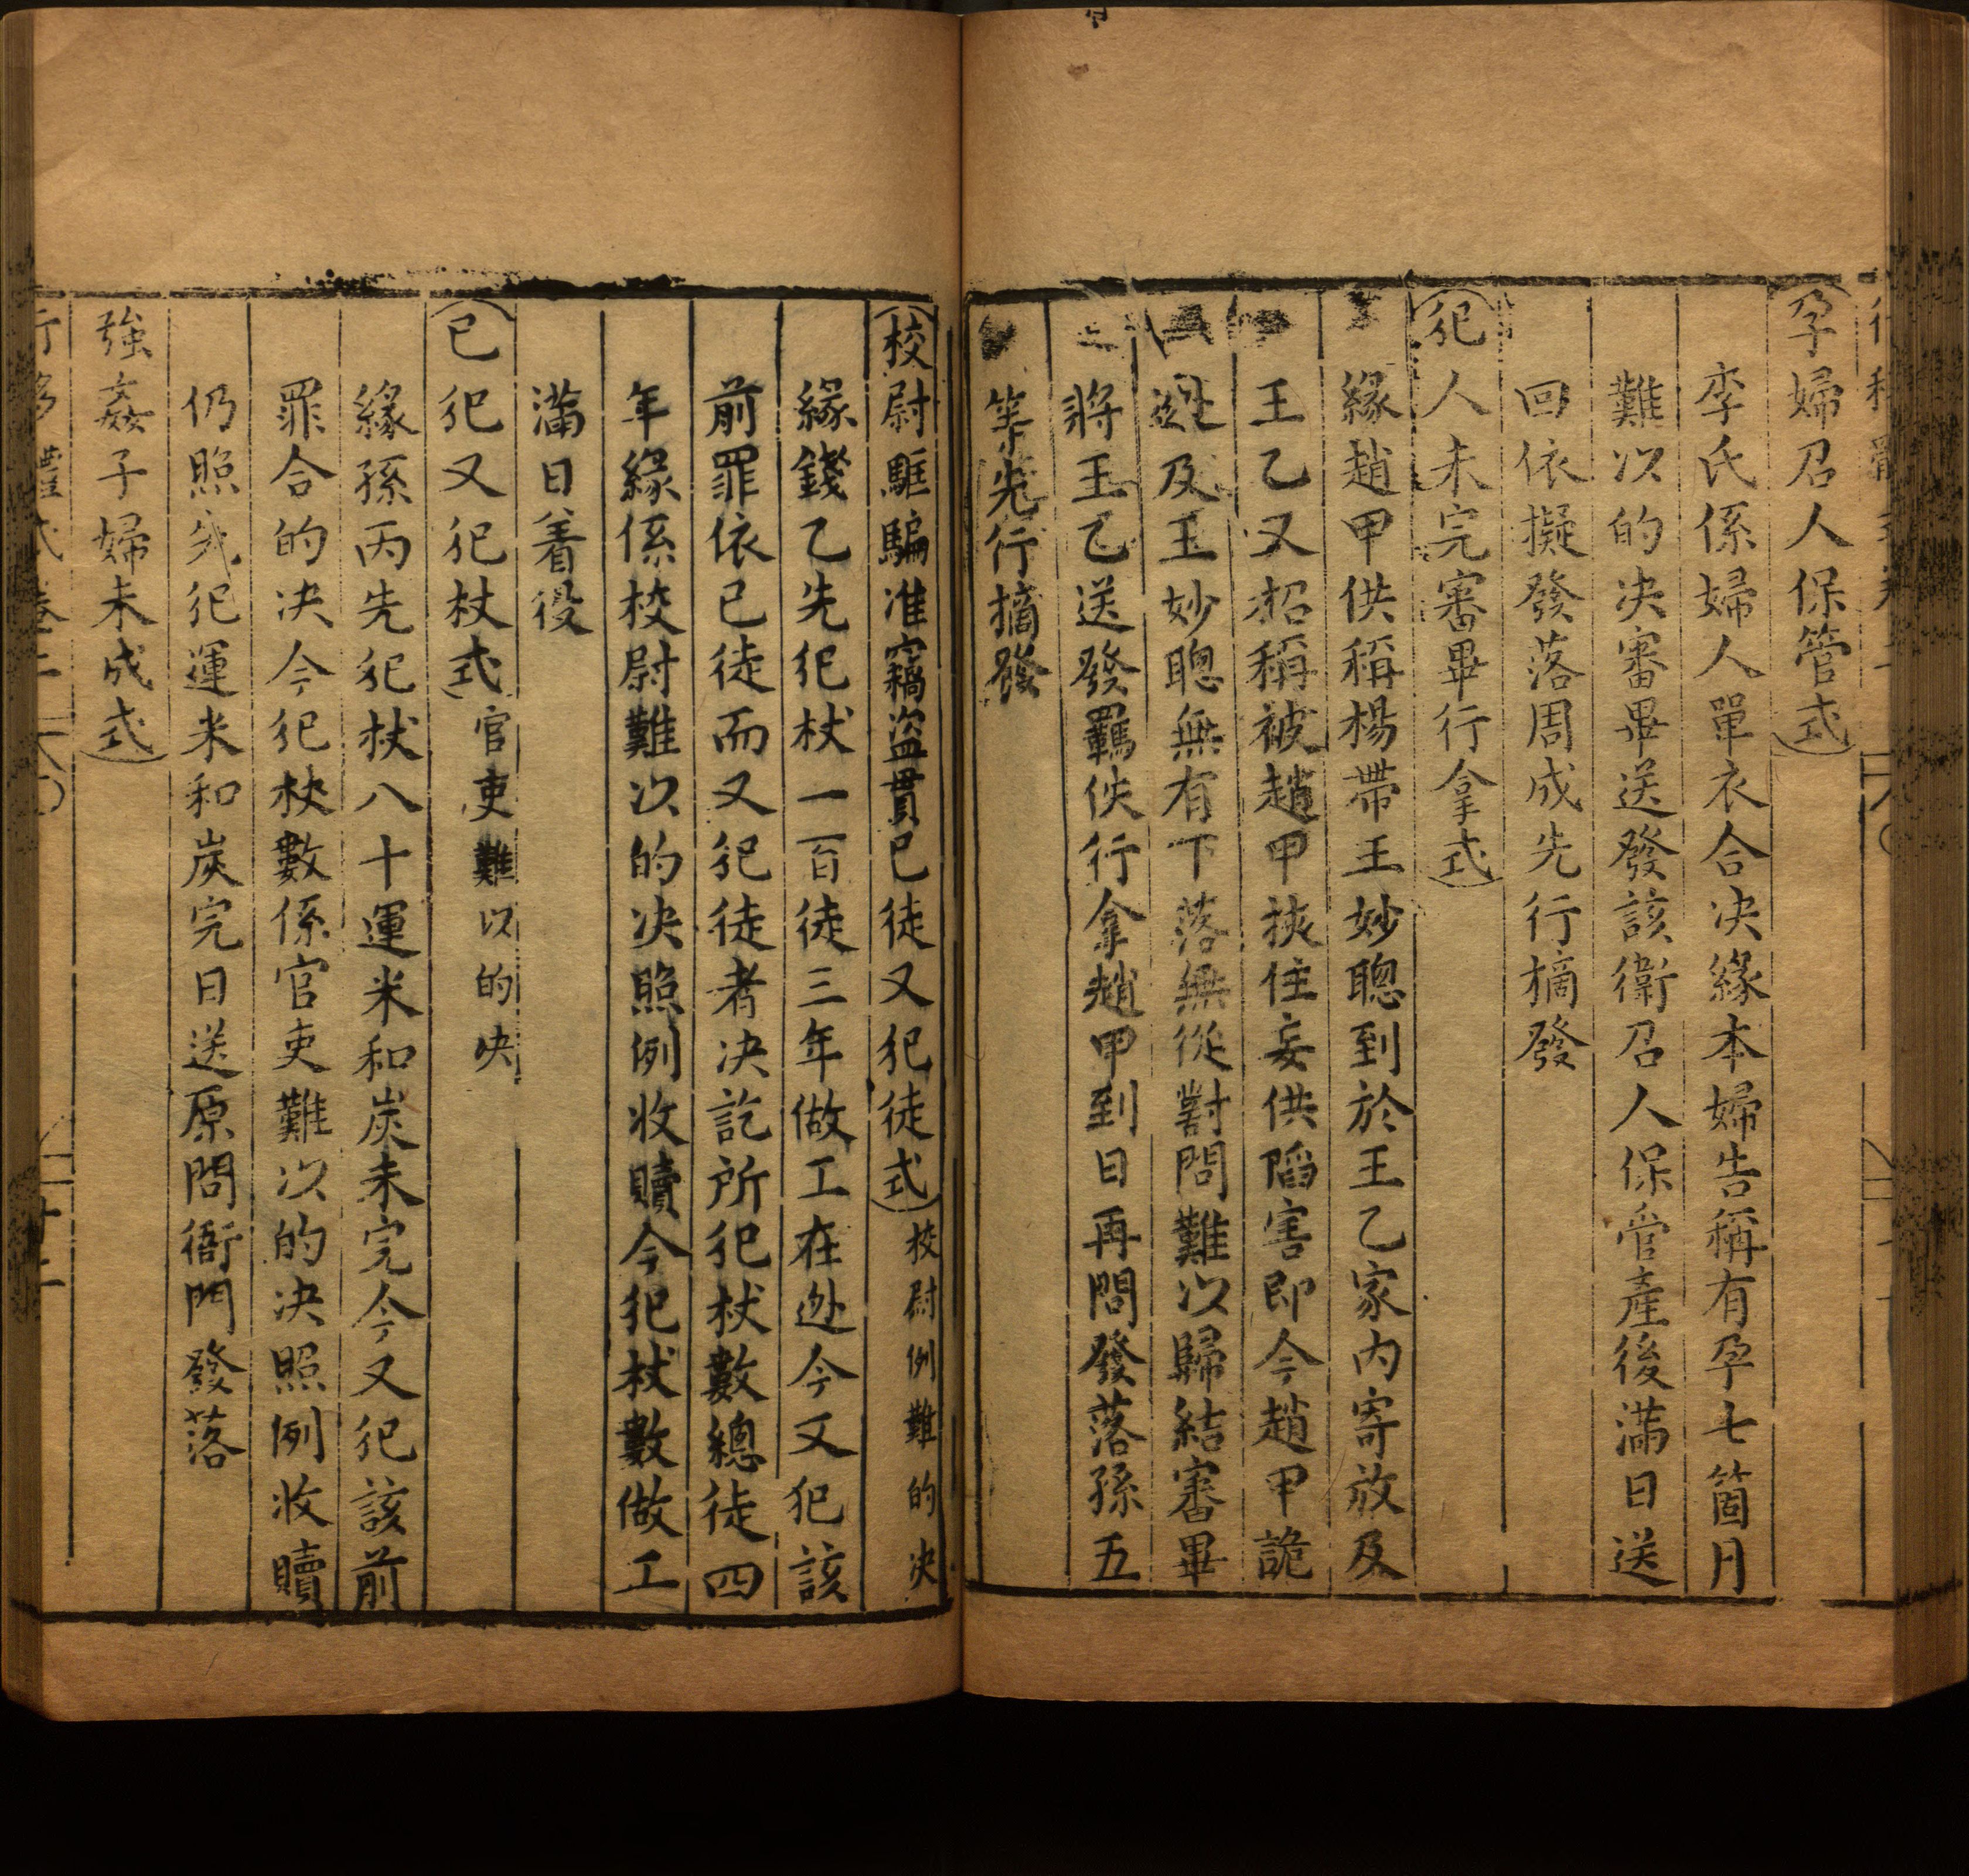 孕婦召人保管式
李氏係婦人單衣合决緣本婦告稱有孕七箇月
難以的决審畢送發該衛召人保管產後滿日送
回依擬發落周成先行摘發
犯人未完審畢行拿式
緣趙甲供稱楊帶王妙聰到於王乙家内寄放及
王乙又招稱被趙甲挾住妄供陷害即今趙甲詭
迯及王妙聰無有下落無從對問難以歸結審畢
將王乙送發羈佚行拿趙甲到日再問發落孫五
等先行摘發
校尉駈騙准竊盗貫已徒又犯徒式 校尉例難的决
緣錢乙先犯杖一百徒三年做工在迯今又犯該
前罪依已徒而又犯徒者决訖所犯杖數總徒四
年緣係校尉難以的决照例收贖今犯杖數做工
滿日着役
已犯又犯杖式 官吏難以的决
緣孫丙先犯杖八十運米和炭未完今又犯該前
罪合的决今犯杖數係官吏難以的决照例收贖
仍照先犯運米和炭完日送原問衙門發落
強姦子婦未成式
行移體式卷二